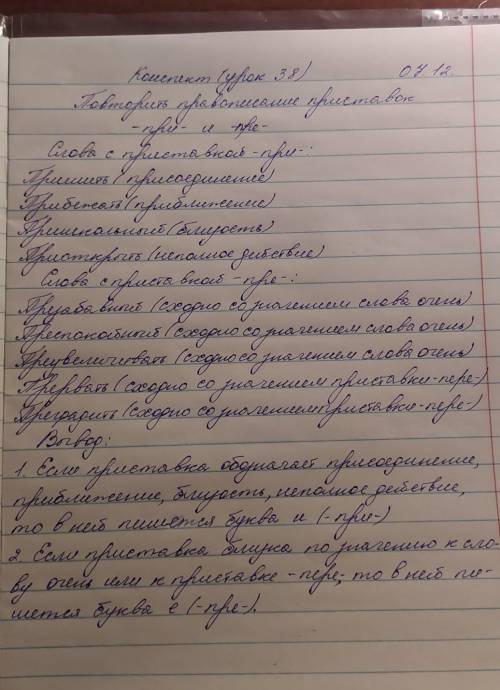 Конспект (урок 38) 07.12.
Повторить правописание приставок
-при- и -пре-
Слова с приставкой -при-:
Пришить (присоединение)
Прибежать (приближение)
Пришкольный (близость)
Приоткрыть (неполное действие)
Слова с приставкой -пре-:
Презабавный (сходно со значением слова очень)
Преспокойный (сходно со значением слова очень)
Преувеличивать (сходно со значением слова очень)
Прервать (сходно со значением приставки -пере-)
Преградить (сходно со значением приставки -пере-)
Вывод:
1. Если приставка обозначает присоединение,
приближение, близость, неполное действие,
то в ней пишется буква и (-при-)
2. Если приставка близка по значению к сло-
ву очень или к приставке -пере-, то в ней пи-
шется буква е (-пре-).